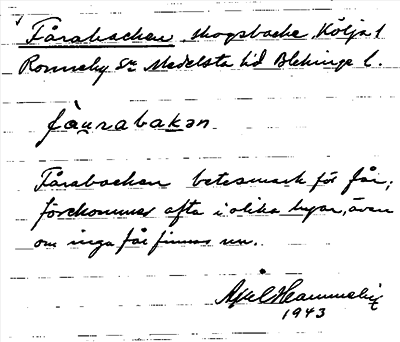 Fårabacken skogsbacke, Kölja 1
Ronneby Sn Medelsta hd Blekinge l.
fåurabakən
Fårabacken betesmark för får,
förekommer ofta i olika byar, även
om inga får finnas nu.
Axel Hammelix
1943